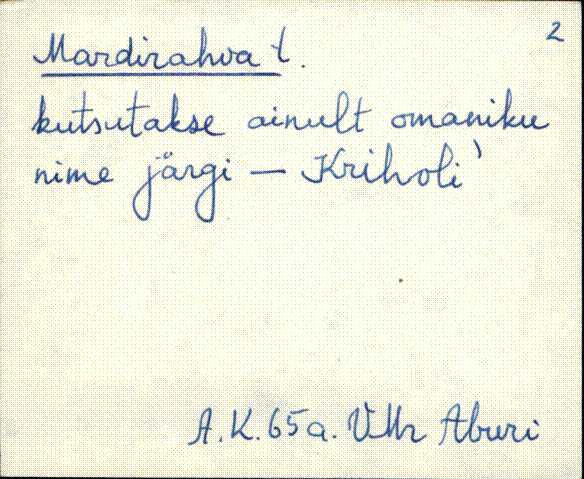 2
Mardirahva t.
kutsutakse ainult omaniku
nime järgi — Kriholi'
A.K. 65a. VMr Aburi